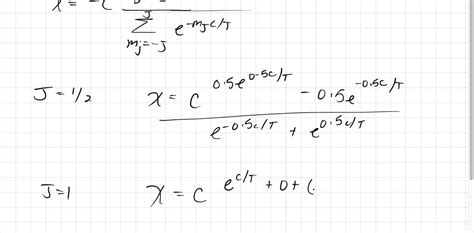 x = -c
J
Σ e^-mJc/T
mj=-J
J = 1/2 x = c 0.5e^0.5c/T - 0.5e^-0.5c/T
e^-0.5c/T + e^0.5c/T
J=1 x = c e^c/T + 0 + (